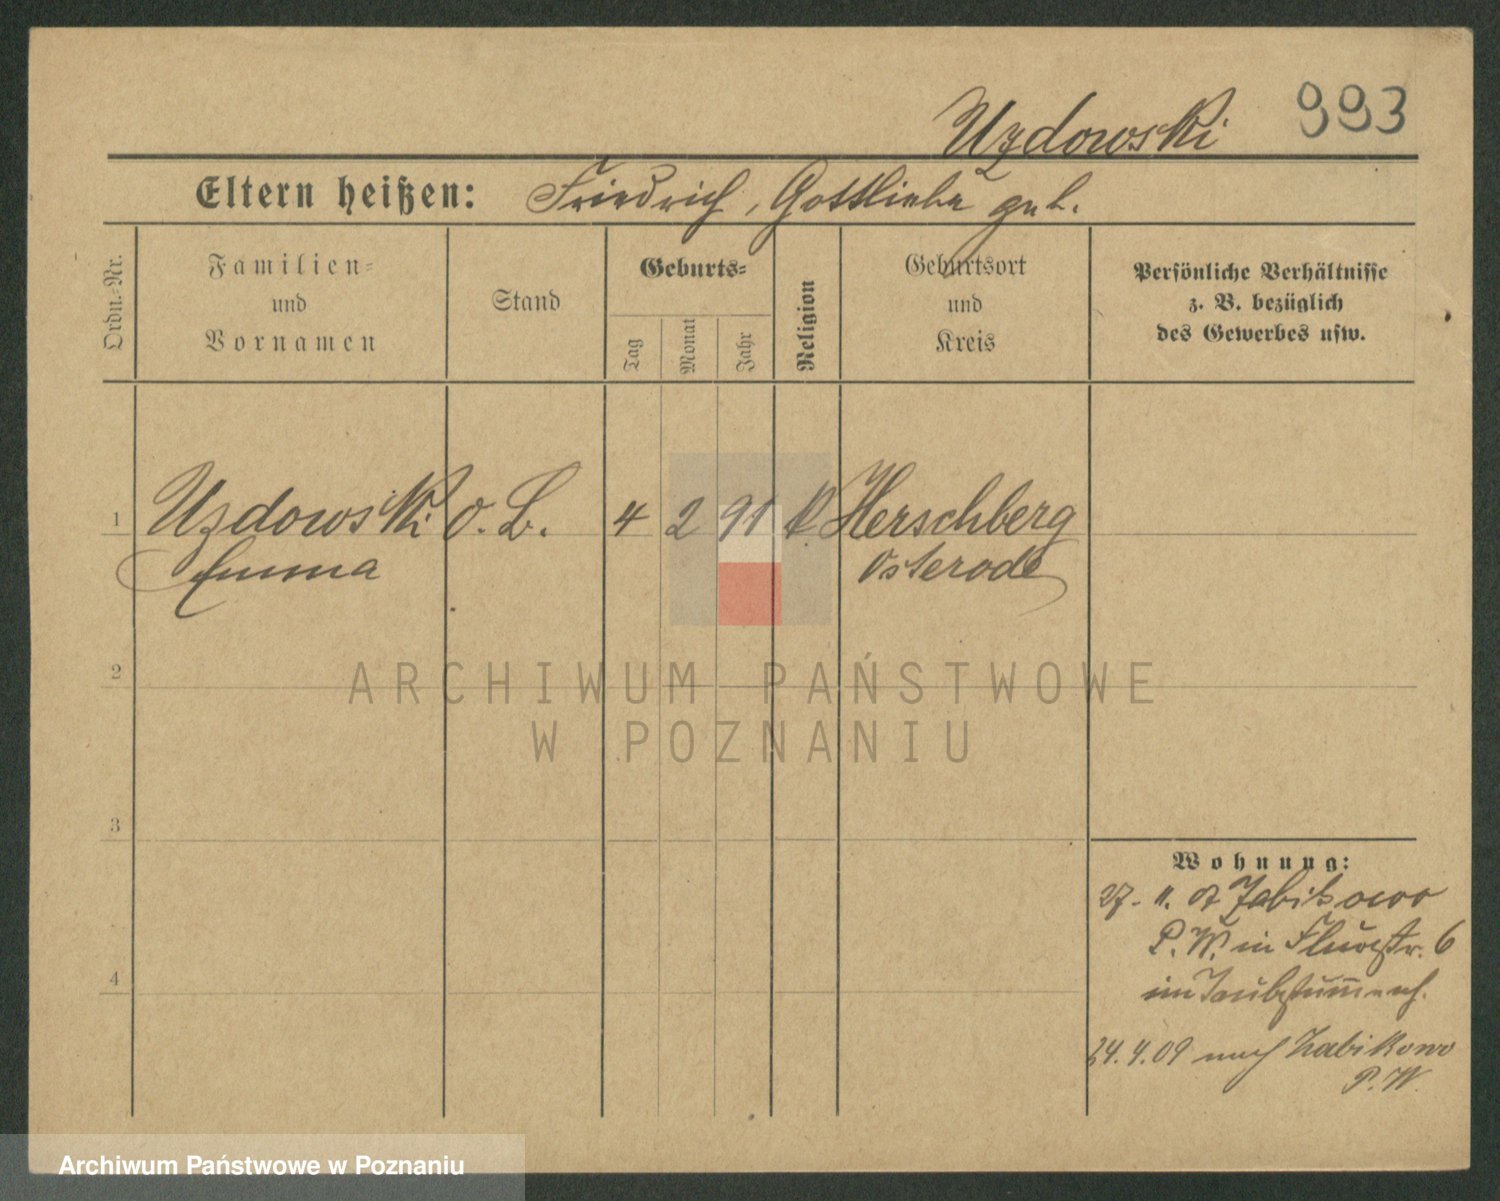 Uzdowski 993
Eltern heißen: Friedrich, Gottliebe geb.
Ordn.-Nr.
Familien-
und
Vornamen
Stand
Geburts-
Tag
Monat
Jahr
Religion
Geburtsort
und
Kreis
Persönliche Verhältnisse
z. B. bezüglich
des Gewerbes usw.
1 Uzdowski O. B. 4 2 91 Herschberg
Emma Osterode
2
3
4
ARCHIWUM PAŃSTWOWE
W POZNANIU
Wohnung:
27. 11. 07 Zabikowo
P. W. in Flurstr. 6
im Taubstummenh.
24.4.09 nach Zabikowo
P. W.
Archiwum Państwowe w Poznaniu